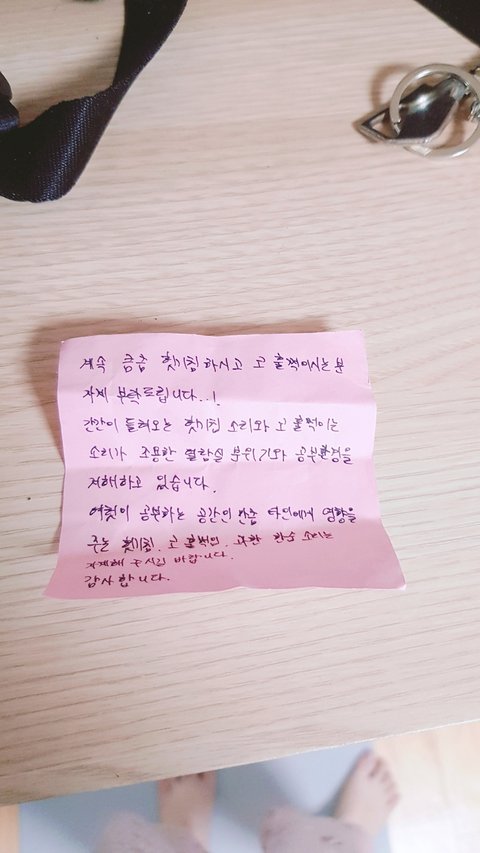 계속 큼큼 헛기침 하시고 코 훌쩍이시는 분
자제 부탁드립니다..!
간간이 들려오는 헛기침 소리와 코 훌쩍이는
소리가 조용한 열람실 분위기와 공부환경을
저해하고 있습니다.
여럿이 공부하는 공간인 만큼 타인에게 영향을
주는 헛기침, 코 훌쩍임, 과한 한숨 소리는
자제해 주시길 바랍니다.
감사합니다.